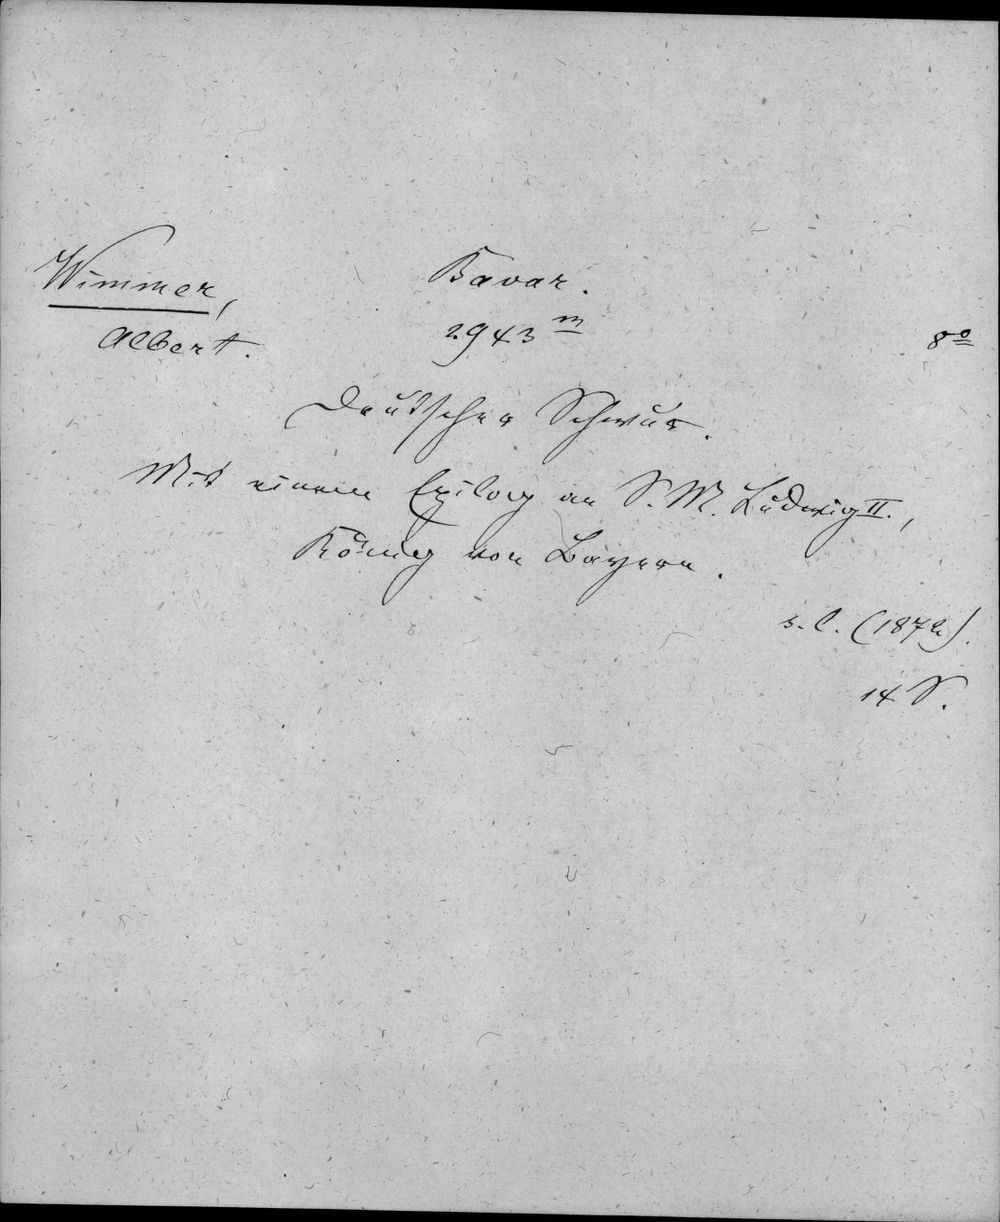 Wimmer,
Albert.
Bavar.
2943 m
8o
Deutscher Schwur.
Mit einem Epilog an S. M. Ludwig II.,
König von Bayern.
s. l. (1872).
14 S.